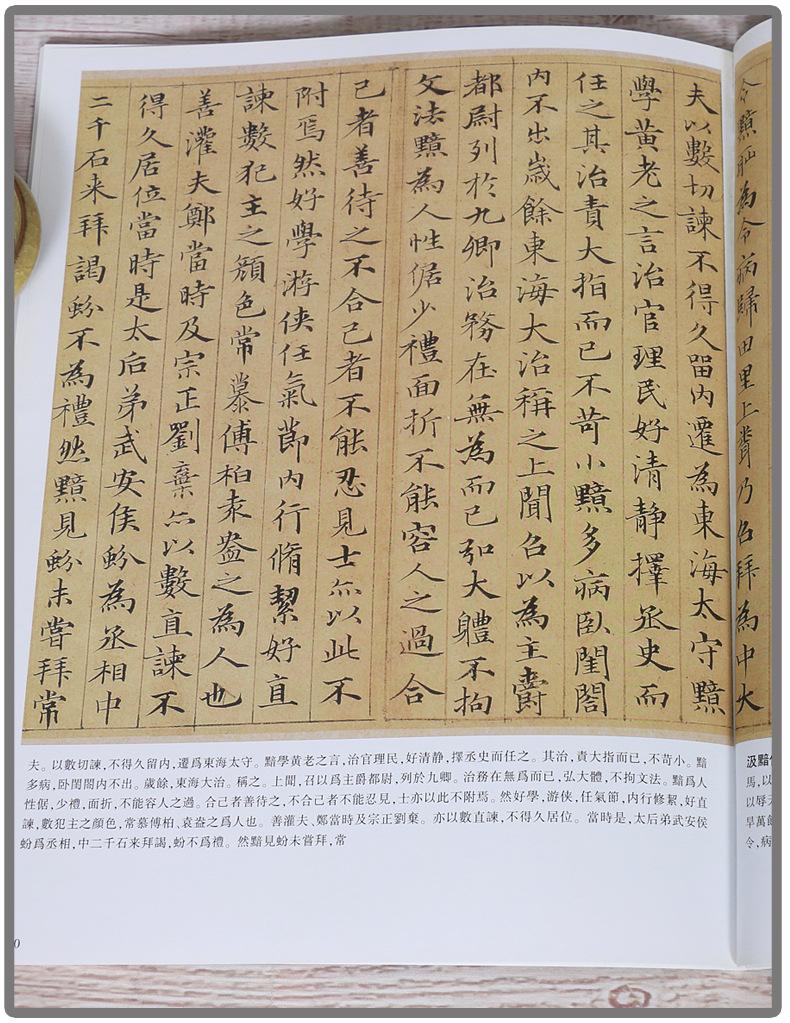 令黯恥為令病歸田里上聞乃召拜為中大
夫以數切諫不得久留内遷為東海太守黯
學黃老之言治官理民好清静擇丞史而
任之其治責大指而已不苛小黯多病臥閨閤
内不出歲餘東海大治稱之上聞召以為主爵
都尉列於九卿治務在無為而已弘大軆不拘
文法黯為人性倨少禮面折不能容人之過合
己者善待之不合己者不能忍見士亦以此不
附焉然好學游侠任氣節内行脩絜好直
諫數犯主之顏色常慕傅柏袁盎之為人也
善灌夫鄭當時及宗正劉棄亦以數直諫不
得久居位當時是太后弟武安侯蚡為丞相中
二千石来拜謁蚡不為禮然黯見蚡未嘗拜常
夫。以數切諫,不得久留内,遷爲東海太守。黯學黄老之言,治官理民,好清静,擇丞史而任之。其治,責大指而已,不苛小。黯
多病,卧閨閤内不出。歲餘,東海大治。稱之。上聞,召以爲主爵都尉,列於九卿。治務在無爲而已,弘大體,不拘文法。黯爲人
性倨,少禮,面折,不能容人之過。合己者善待之,不合己者不能忍見,士亦以此不附焉。然好學,游俠,任氣節,内行修絜,好直
諫,數犯主之顔色,常慕傅柏、袁盎之爲人也。善灌夫、鄭當時及宗正劉棄。亦以數直諫,不得久居位。當時是,太后弟武安侯
蚡爲丞相,中二千石来拜謁,蚡不爲禮。然黯見蚡未嘗拜,常
0
汲黯
馬,以
以辱
旱萬
令,病